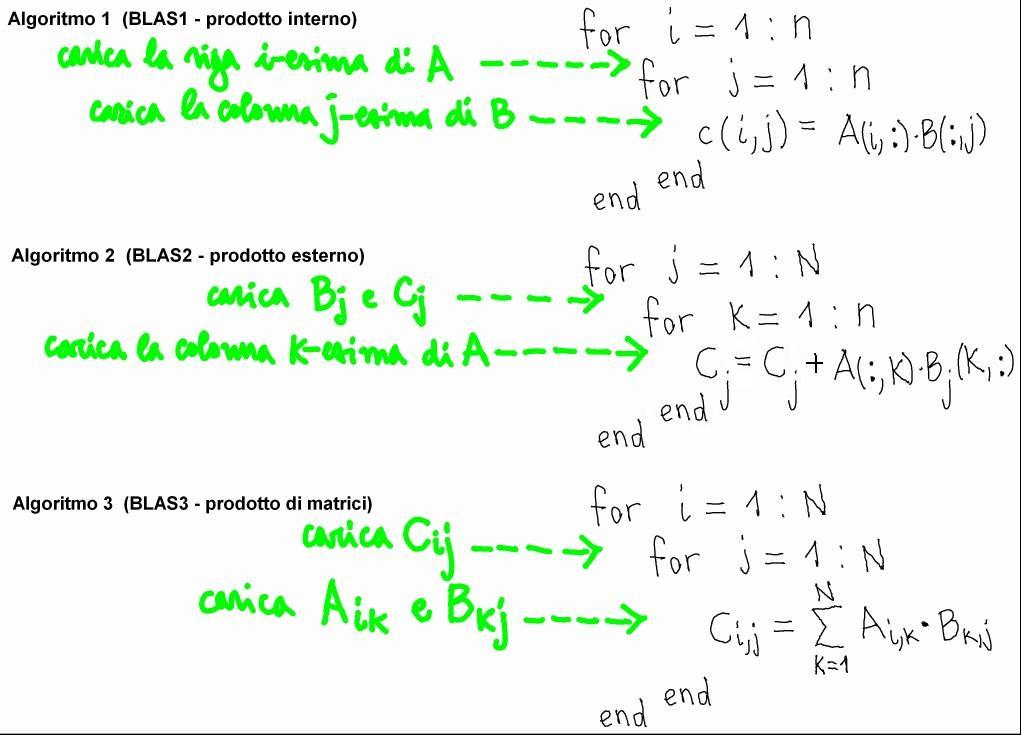 Algoritmo 1 (BLAS1 - prodotto interno)
for i = 1 : n
carica la riga i-esima di A
for j = 1 : n
carica la colonna j-esima di B
c(i,j) = A(i,:)·B(:,j)
end
end
Algoritmo 2 (BLAS2 - prodotto esterno)
for j = 1 : N
carica Bj e Cj
for K = 1 : n
carica la colonna K-esima di A
Cj = Cj + A(:,K)·Bj(K,:)
end
end
Algoritmo 3 (BLAS3 - prodotto di matrici)
for i = 1 : N
carica Cij
for j = 1 : N
carica Aik e BKj
Ci,j = ∑ K=1 N Ai,K · BK,j
end
end